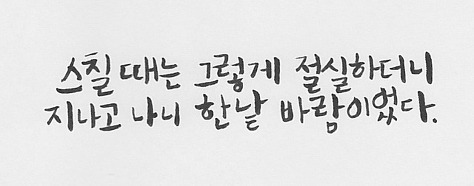 스칠 때는 그렇게 절실하더니
지나고 나니 한낱 바람이었다.